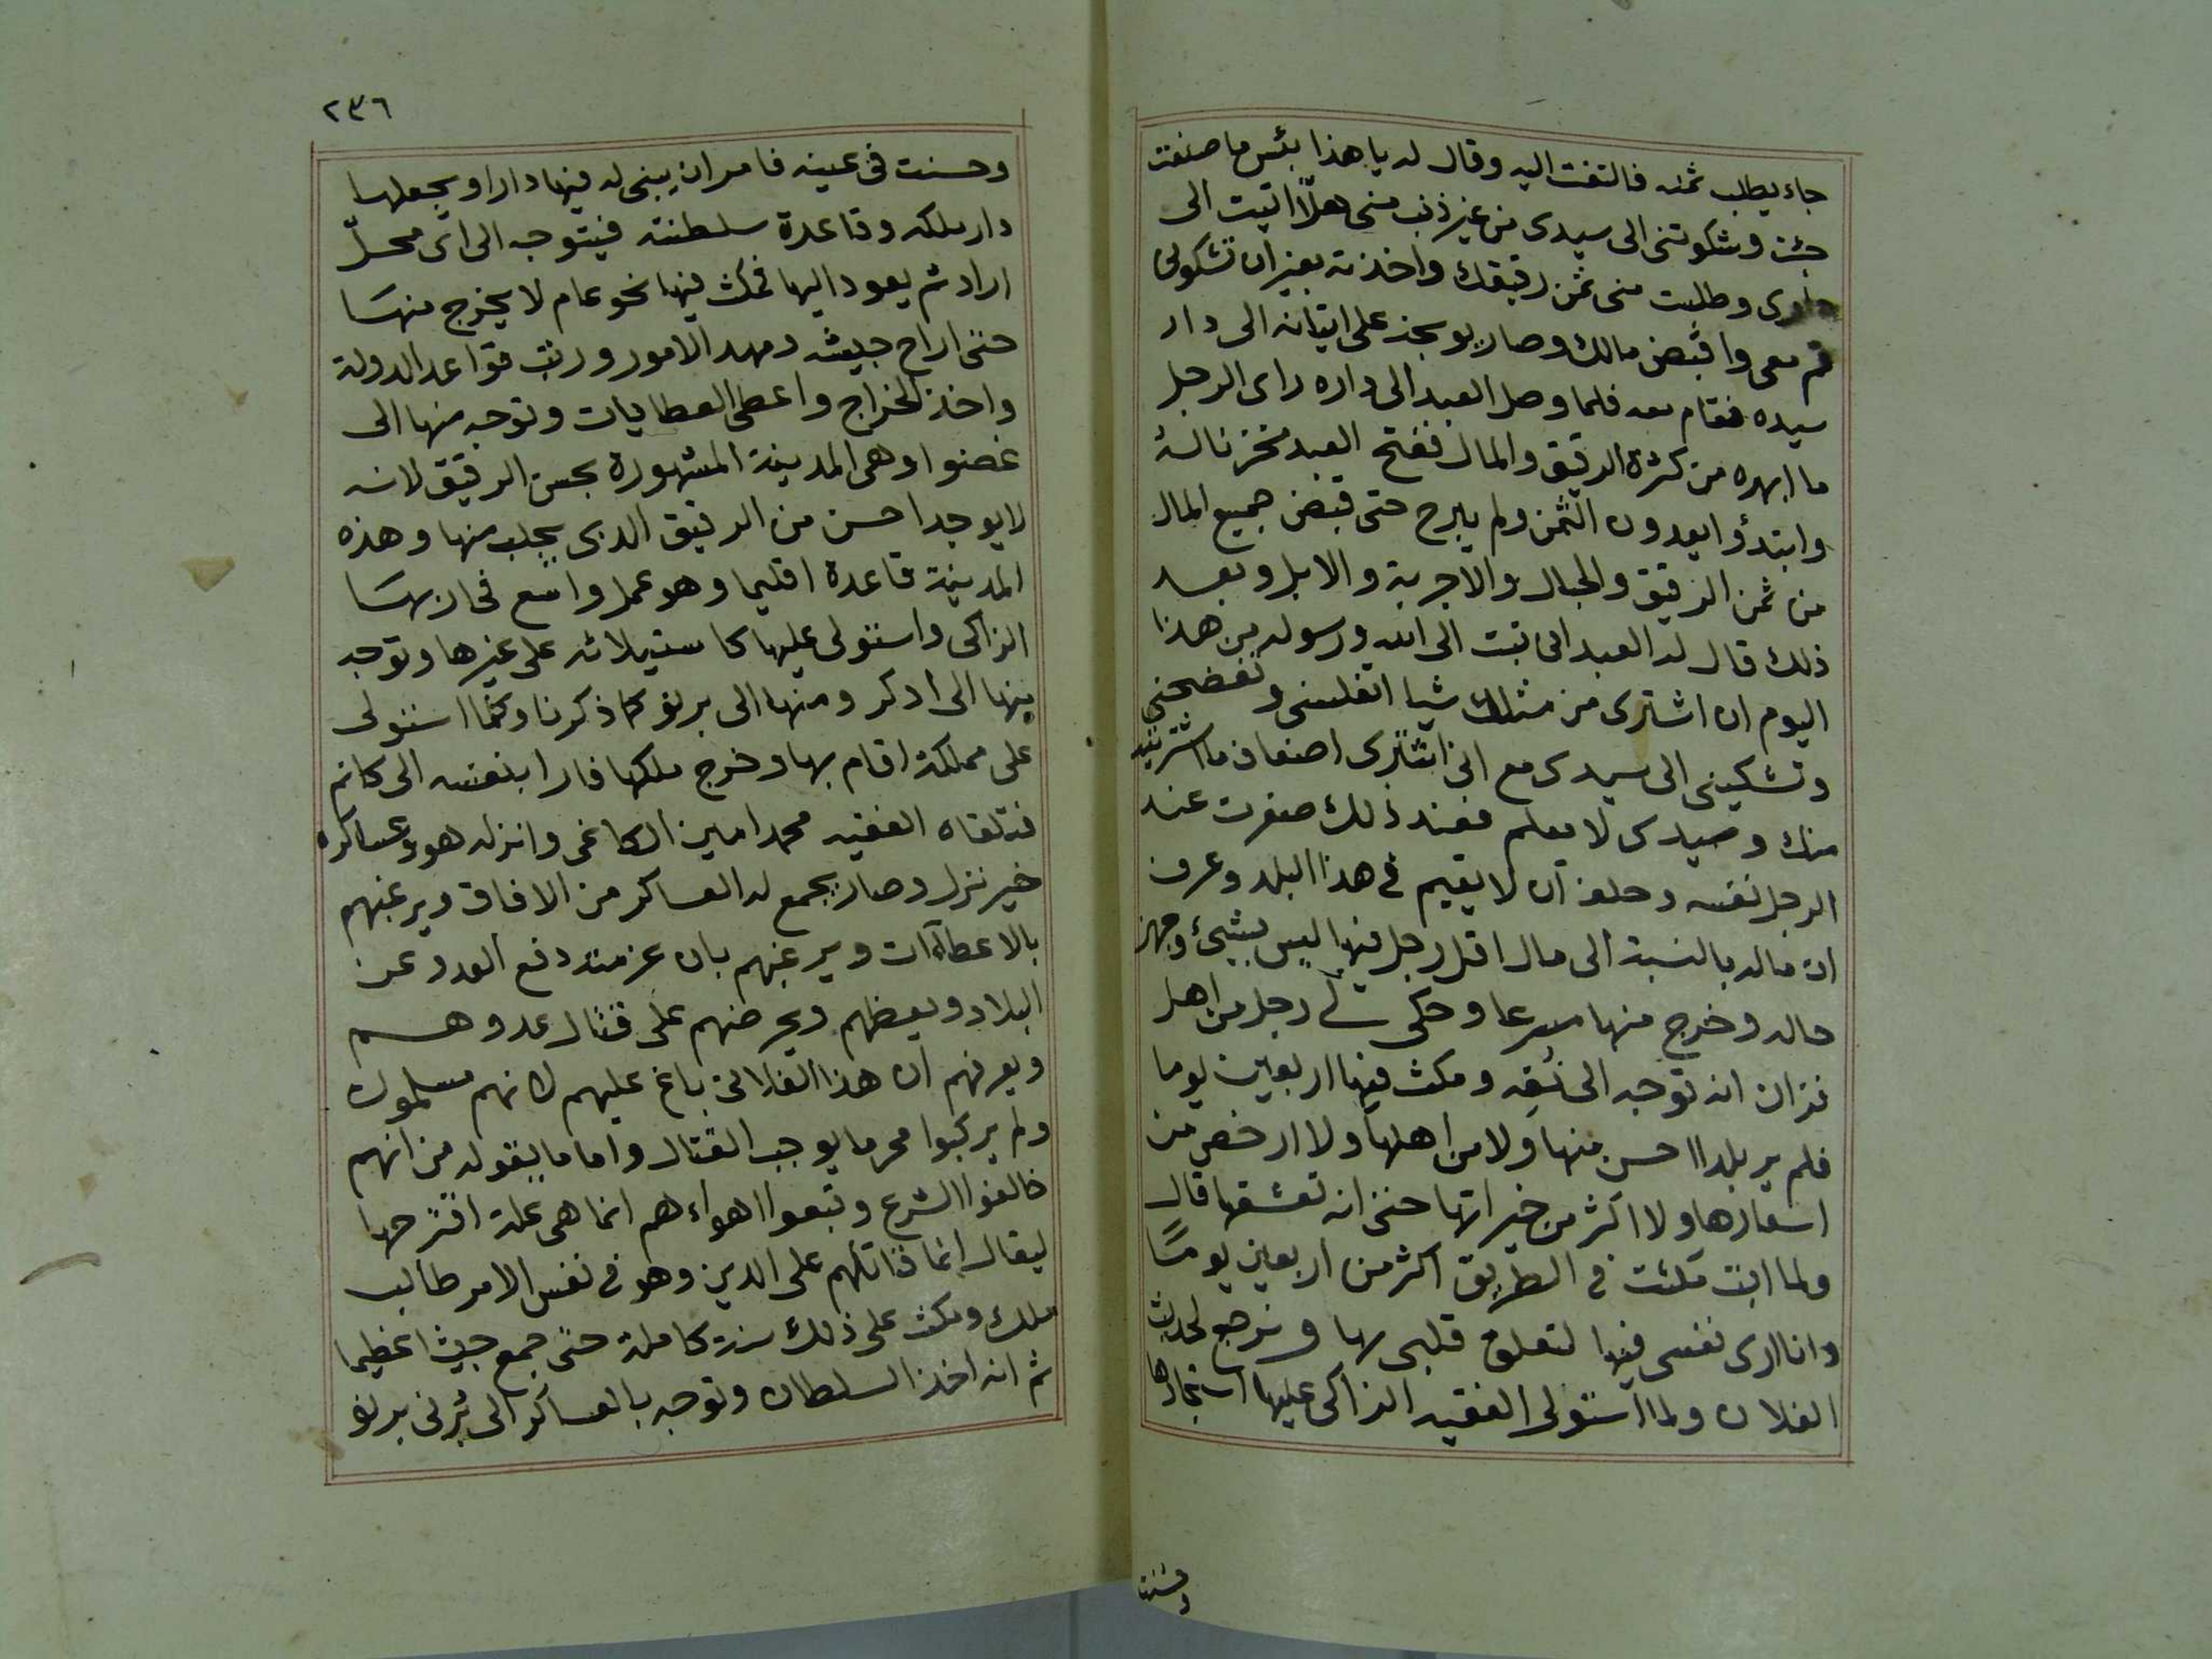 جاء يطلب ثمنه فالتفت اليه وقال له يا هذا بئس ما صنعت
جئت وشكوتنى الى سيدى من غير ذنب منى هلّا اتيت الى
دارى وطلبت منى ثمن رقيقك واخذته بغير ان تشكونى
قم معى واقبض مالك وصار يوبخه على اتيانه الى دار
سيده فقام معه فلما وصل العبد الى داره راى الرجل
ما ابهره من كثرة الرقيق والمال ففتح العبد مخزنا له
وابتدؤا يعدون الثمن ولم يبرح حتى قبض جميع المال
من ثمن الرقيق والحبال والاجربة والابل وبعد
ذلك قال له العبد انى تبت الى الله ورسوله من هذا
اليوم ان اشترى من مثلك شيا اتفلسنى وتفضحنى
وتشكينى الى سيدى مع انى اشترى اضعاف ما اشتريته
منك وسيدى لا يعلم فعند ذلك صغرت عند
الرجل نفسه وحلف ان لا يقيم فى هذا البلد وعرف
ان ماله بالنسبة الى مال اقل رجل فيها ليس بشيئ وجهز
حاله وخرج منها مسرعا وحكى لى رجل من اهل
فزان انه توجه الى نفه ومكث فيها اربعين يوما
فلم ير بلدا احسن منها ولا من اهلها ولا ارخص من
اسعارها ولا اكثر من خيراتها حتى انه تعشقها قال
ولما ابت مكثت فى الطريق اكثر من اربعين يومًا
وانا ارى نفسى فيها لتعلق قلبى بها ونرجع لحديث
الفلان ولما استولى الفقيه الزاكى عليها استجادها
وحسنت
٢٣٦
وحسنت فى عينه فامر ان يبنى له فيها دارا ويجعلها
دار ملكه وقاعدة سلطنته فيتوجه الى اى محلّ
اراد ثم يعود اليها فمكث فيها نحو عام لا يخرج منها
حتى اراح جيشه ومهد الامور ورتب قواعد الدولة
واخذ الخراج واعطى العطايات وتوجه منها الى
غضنوا وهى المدينة المشهورة بحسن الرقيق لانه
لا يوجد احسن من الرقيق الذى يجلب منها وهذه
المدينة قاعدة اقليما وهو عمل واسع فحاربها
الزاكى واستولى عليها كاستيلائه على غيرها وتوجه
منها الى ادكر ومنها الى برنو كما ذكرنا وكلما استولى
على مملكة اقام بها وخرج ملكها فارا بنفسه الى كانم
فتلقاه الفقيه محمد امين الكاغى وانزله هو وعساكره
خير نزل وصار يجمع له العساكر من الافاق ويرغبهم
بالاعطاآت ويرغبهم بان عزمته دفع العدو عن
البلاد ويعظهم ويحرضهم على قتال عدوهم
ويعرفهم ان هذا الفلانى باغ عليهم لانهم مسلمون
ولم يركبوا محرما يوجب القتال واما ما يقوله من انهم
خالفوا الشرع وتبعوا اهواءهم انما هى علة اقترحها
ليقال انما قاتلهم على الدين وهو فى نفس الامر طالب
ملك ومكث على ذلك سنة كاملة حتى جمع جيشا عظيما
ثم انه اخذ السلطان وتوجه بالعساكر الى برنى برنو